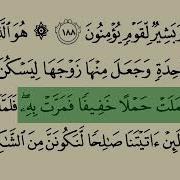 وَبَشِيرٌ لِّقَوْمٍ يُؤْمِنُونَ ١٨٨ ۞ هُوَ ٱلَّ
حِدَةٍ وَجَعَلَ مِنْهَا زَوْجَهَا لِيَسْكُنَ
مَلَتْ حَمْلًا خَفِيفًا فَمَرَّتْ بِهِۦۖ فَلَمَّا
لَئِنْ ءَاتَيْتَنَا صَٰلِحًا لَّنَكُونَنَّ مِنَ ٱلشَّ